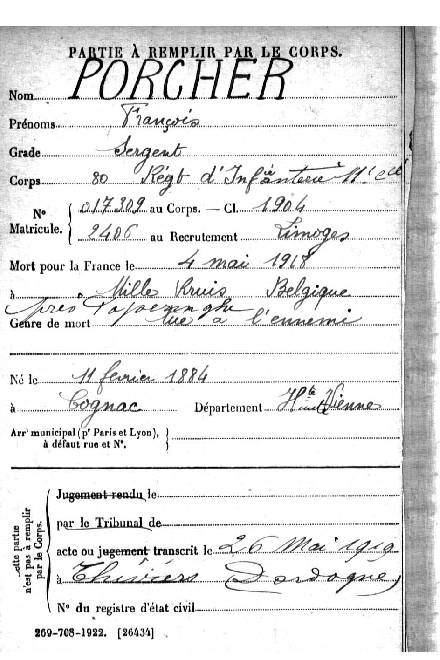 PARTIE À REMPLIR PAR LE CORPS.
Nom PORCHER
Prénoms François
Grade Sergent
Corps 80 Régt d'Infanterie 11e Cie
N° Matricule. { 017309 au Corps. — Cl. 1904
2406 au Recrutement Limoges
Mort pour la France le 4 mai 1918
à Mille Kruis Belgique
près
Genre de mort tué à l'ennemi
Né le 11 fevrier 1884
à Cognac Département Hte Vienne
Arrt municipal (pr Paris et Lyon), à défaut rue et N°. }
Cette partie n'est pas à remplir par le Corps. {
Jugement rendu le
par le Tribunal de
acte ou jugement transcrit le 26 Mai 1919
à Thiviers Dordogne
N° du registre d'état civil
269-708-1922. [26434]